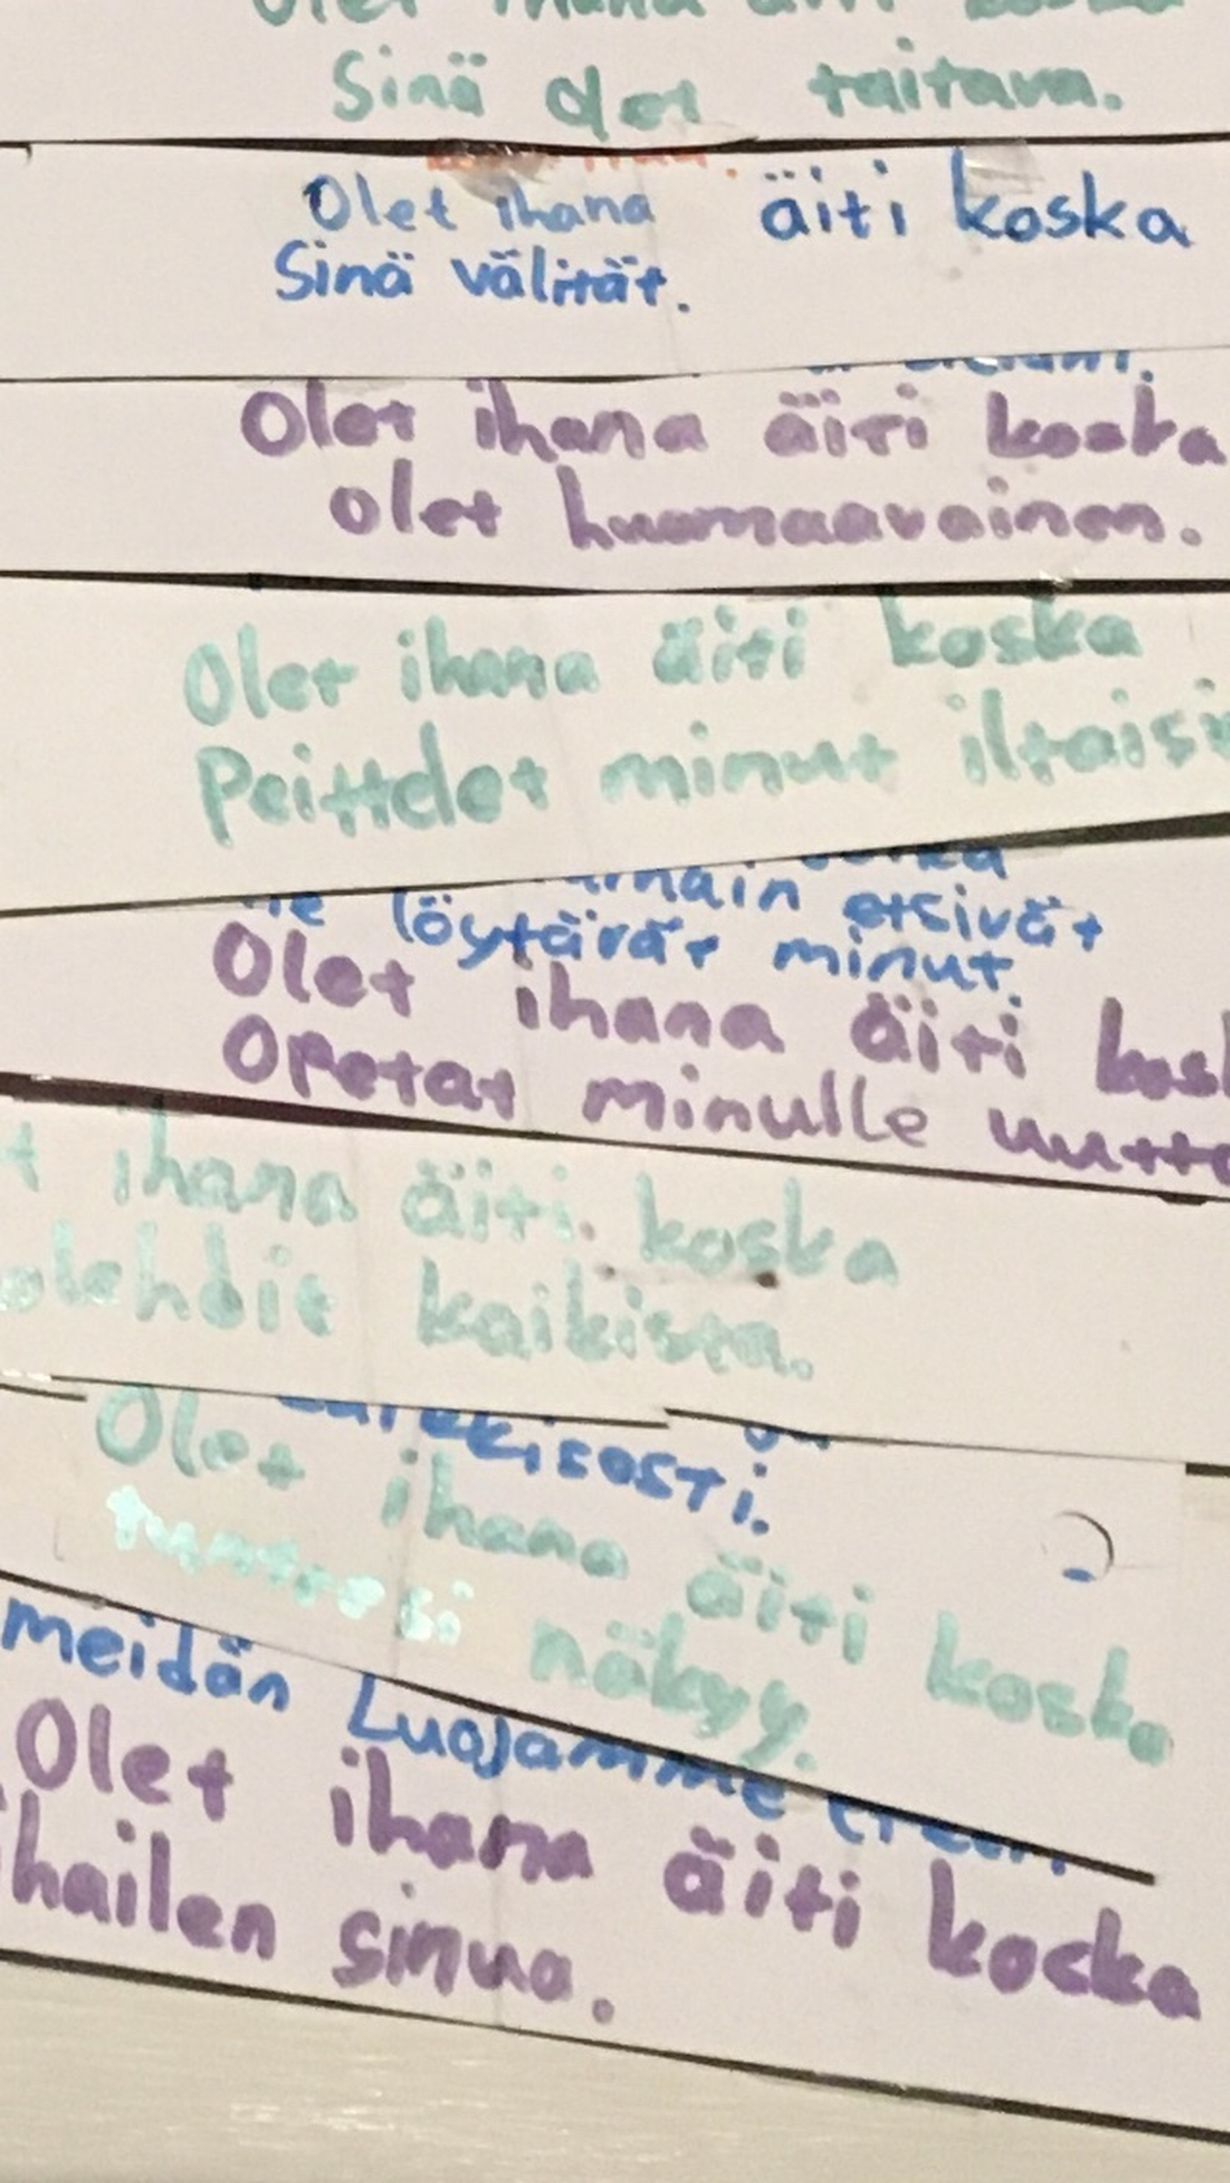 Olet ihana äiti koska
Sinä olet taitava.
Olet ihana äiti koska
Sinä välität.
Olet ihana äiti koska
olet huomaavainen.
Olet ihana äiti koska
Peittelet minut iltaisi
etsivät
löytävät minut.
Olet ihana äiti kosk
Opetat minulle uutta
ihana äiti koska
olehdit kaikista.
Olet ihana äiti koska
tunteesi näkyy.
meidän Luojamme
Olet ihana äiti koska
ihailen sinua.